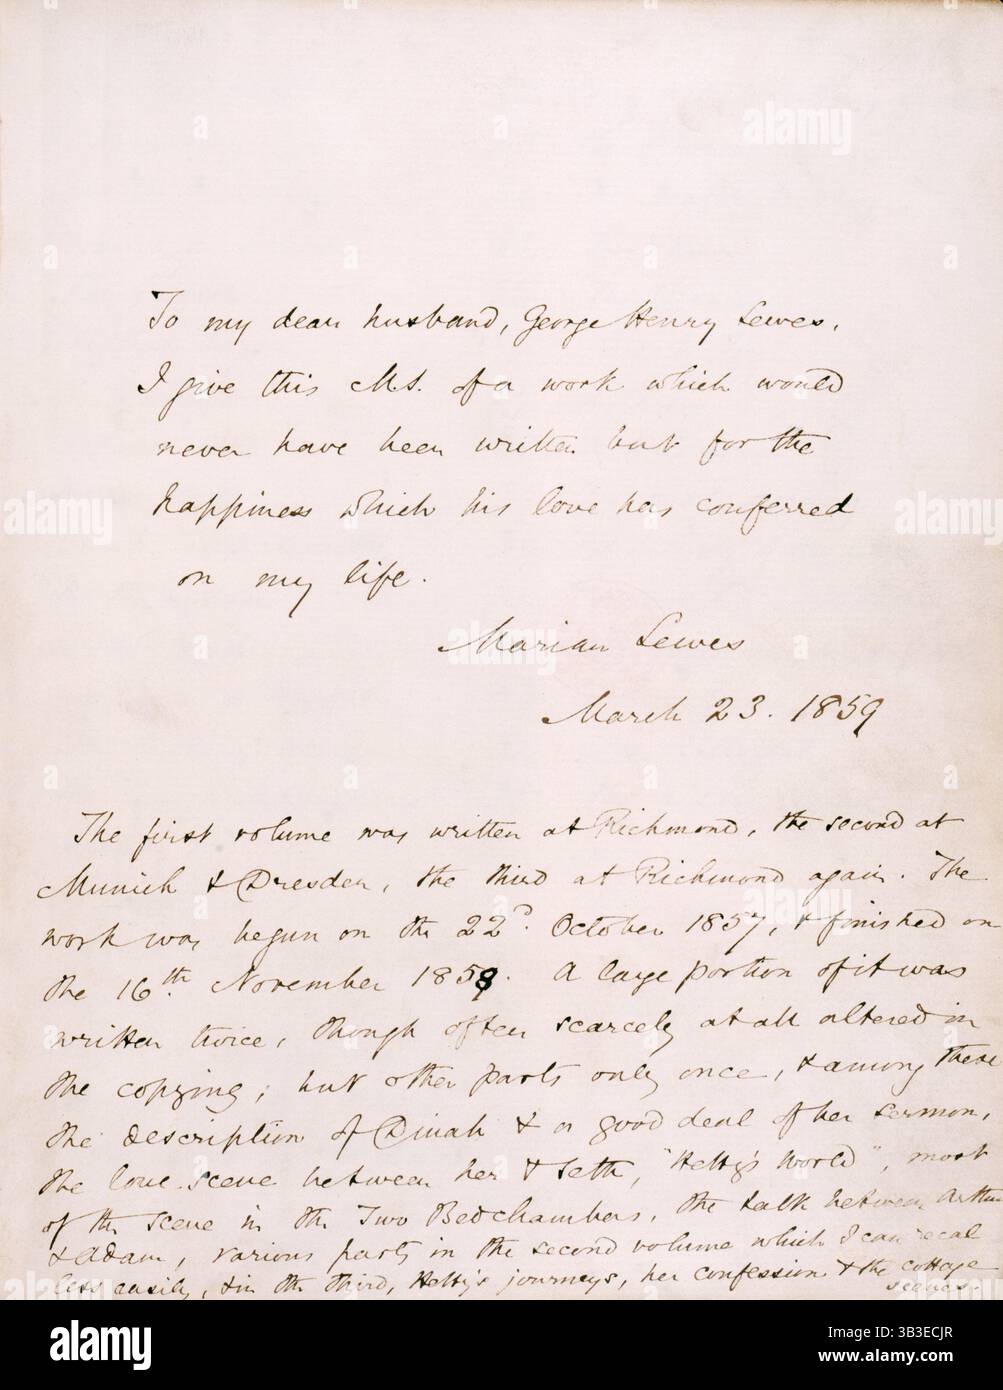 To my dear husband, George Henry Lewes,
I give this M.S. of a work which would
never have been written but for the
happiness which his love has conferred
on my life.
Marian Lewes
March 23. 1859
The first volume was written at Richmond, the second at
Munich & Dresden, the third at Richmond again. The
work was begun on the 22d. October 1857, & finished on
the 16th. November 1858. A large portion of it was
written twice, though often scarcely at all altered in
the copying; but other parts only once, & among these
the description of Dinah & a good deal of her sermon,
the love scene between her & Seth, "Hetty's World", most
of the scene in the Two Bedchambers, the talk between Arthur
& Adam, various parts in the second volume which I can recal
less easily, & in the third, Hetty's journeys, her confession & the cottage
scenes.
alamy
Image ID: B3ECJR
www.alamy.com